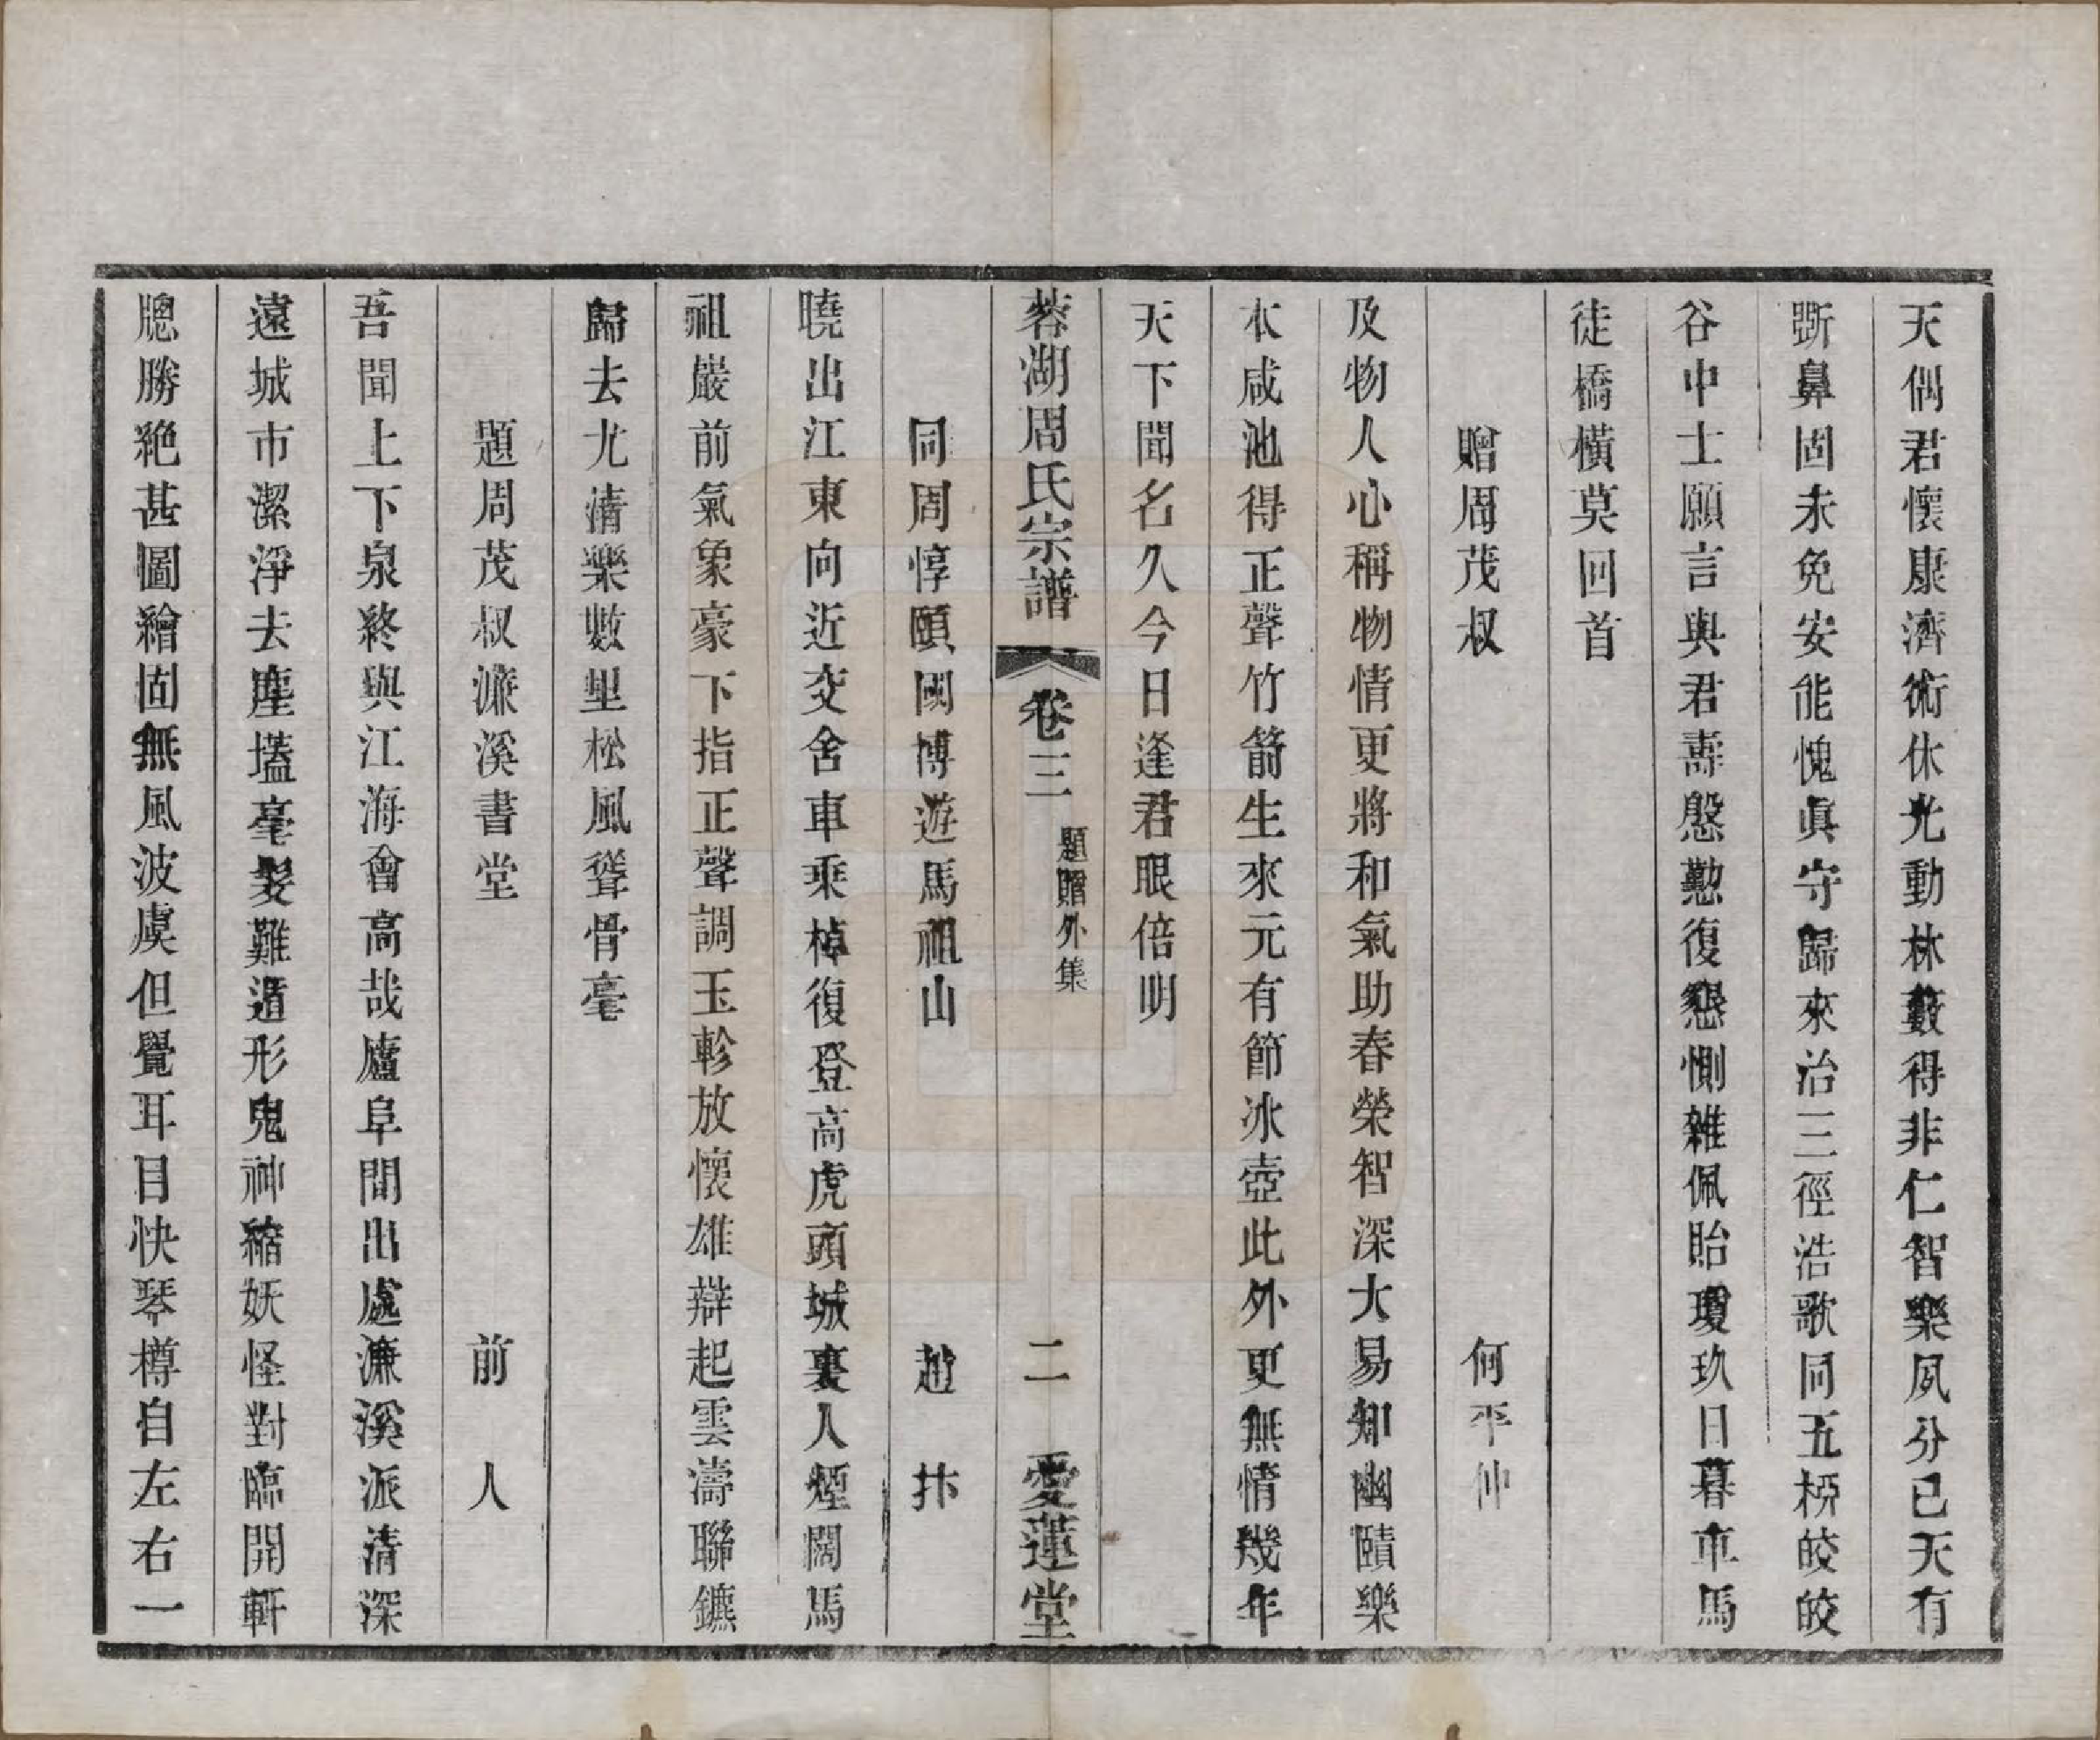 天偶君懷康濟術休光動林藪得非仁智樂夙分已天有
斲鼻固未免安能愧眞守歸來治三徑浩歌同五柳皎皎
谷中士願言與君壽慇懃復懇惻雜佩貽瓊玖日暮車馬
徒橋橫莫回首
贈周茂叔 何平仲
及物人心稱物情更將和氣助春榮智深大易知幽賾樂
本咸池得正聲竹箭生來元有節冰壺此外更無情幾年
天下聞名久今日逢君眼倍明
蓉湖周氏宗譜 卷三 題贈外集 二 愛蓮堂
同周惇頤國博遊馬祖山 趙 抃
曉出江東向近交舍車乘棹復登高虎頭城裏人煙闊馬
祖巖前氣象豪下指正聲調玉軫放懷雄辯起雲濤聯鑣
歸去尤淸樂數里松風聳骨毫
題周茂叔濂溪書堂 前 人
吾聞上下泉終與江海會高哉廬阜間出處濂溪派清深
遠城市潔淨去塵壒毫髮難遁形鬼神縮妖怪對臨開軒
牕勝絶甚圖繪固無風波虞但覺耳目快琴樽自左右一